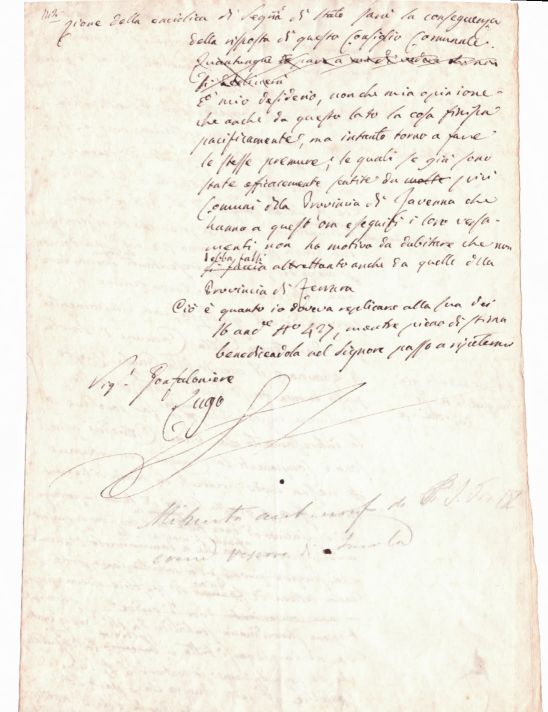 zione della enciclica di Segria di Stato sarà la conseguenza
della risposta di questo Consiglio Comunale.
Quantunque
È mio desiderio, non che mia opinione
che anche da questo lato la cosa finisca
pacificamente, ma intanto torno a fare
le stesse premure; le quali se già sono
state efficacemente sentite da molte più
Comuni della Provincia di Ravenna che
hanno a quest'ora eseguiti i loro versa-
menti non ho motivo da dubitare che non
debba farsi
si faccia altrettanto anche da quelle della
Provincia di Ferrara
Ciò è quanto io doveva replicare alla sua dei
16 andte No 427, mentre pieno di stima
benedicendola nel Signore passo a ripetermi
Sigr Gonfaloniere
Lugo
Minuta de P.
di Imola